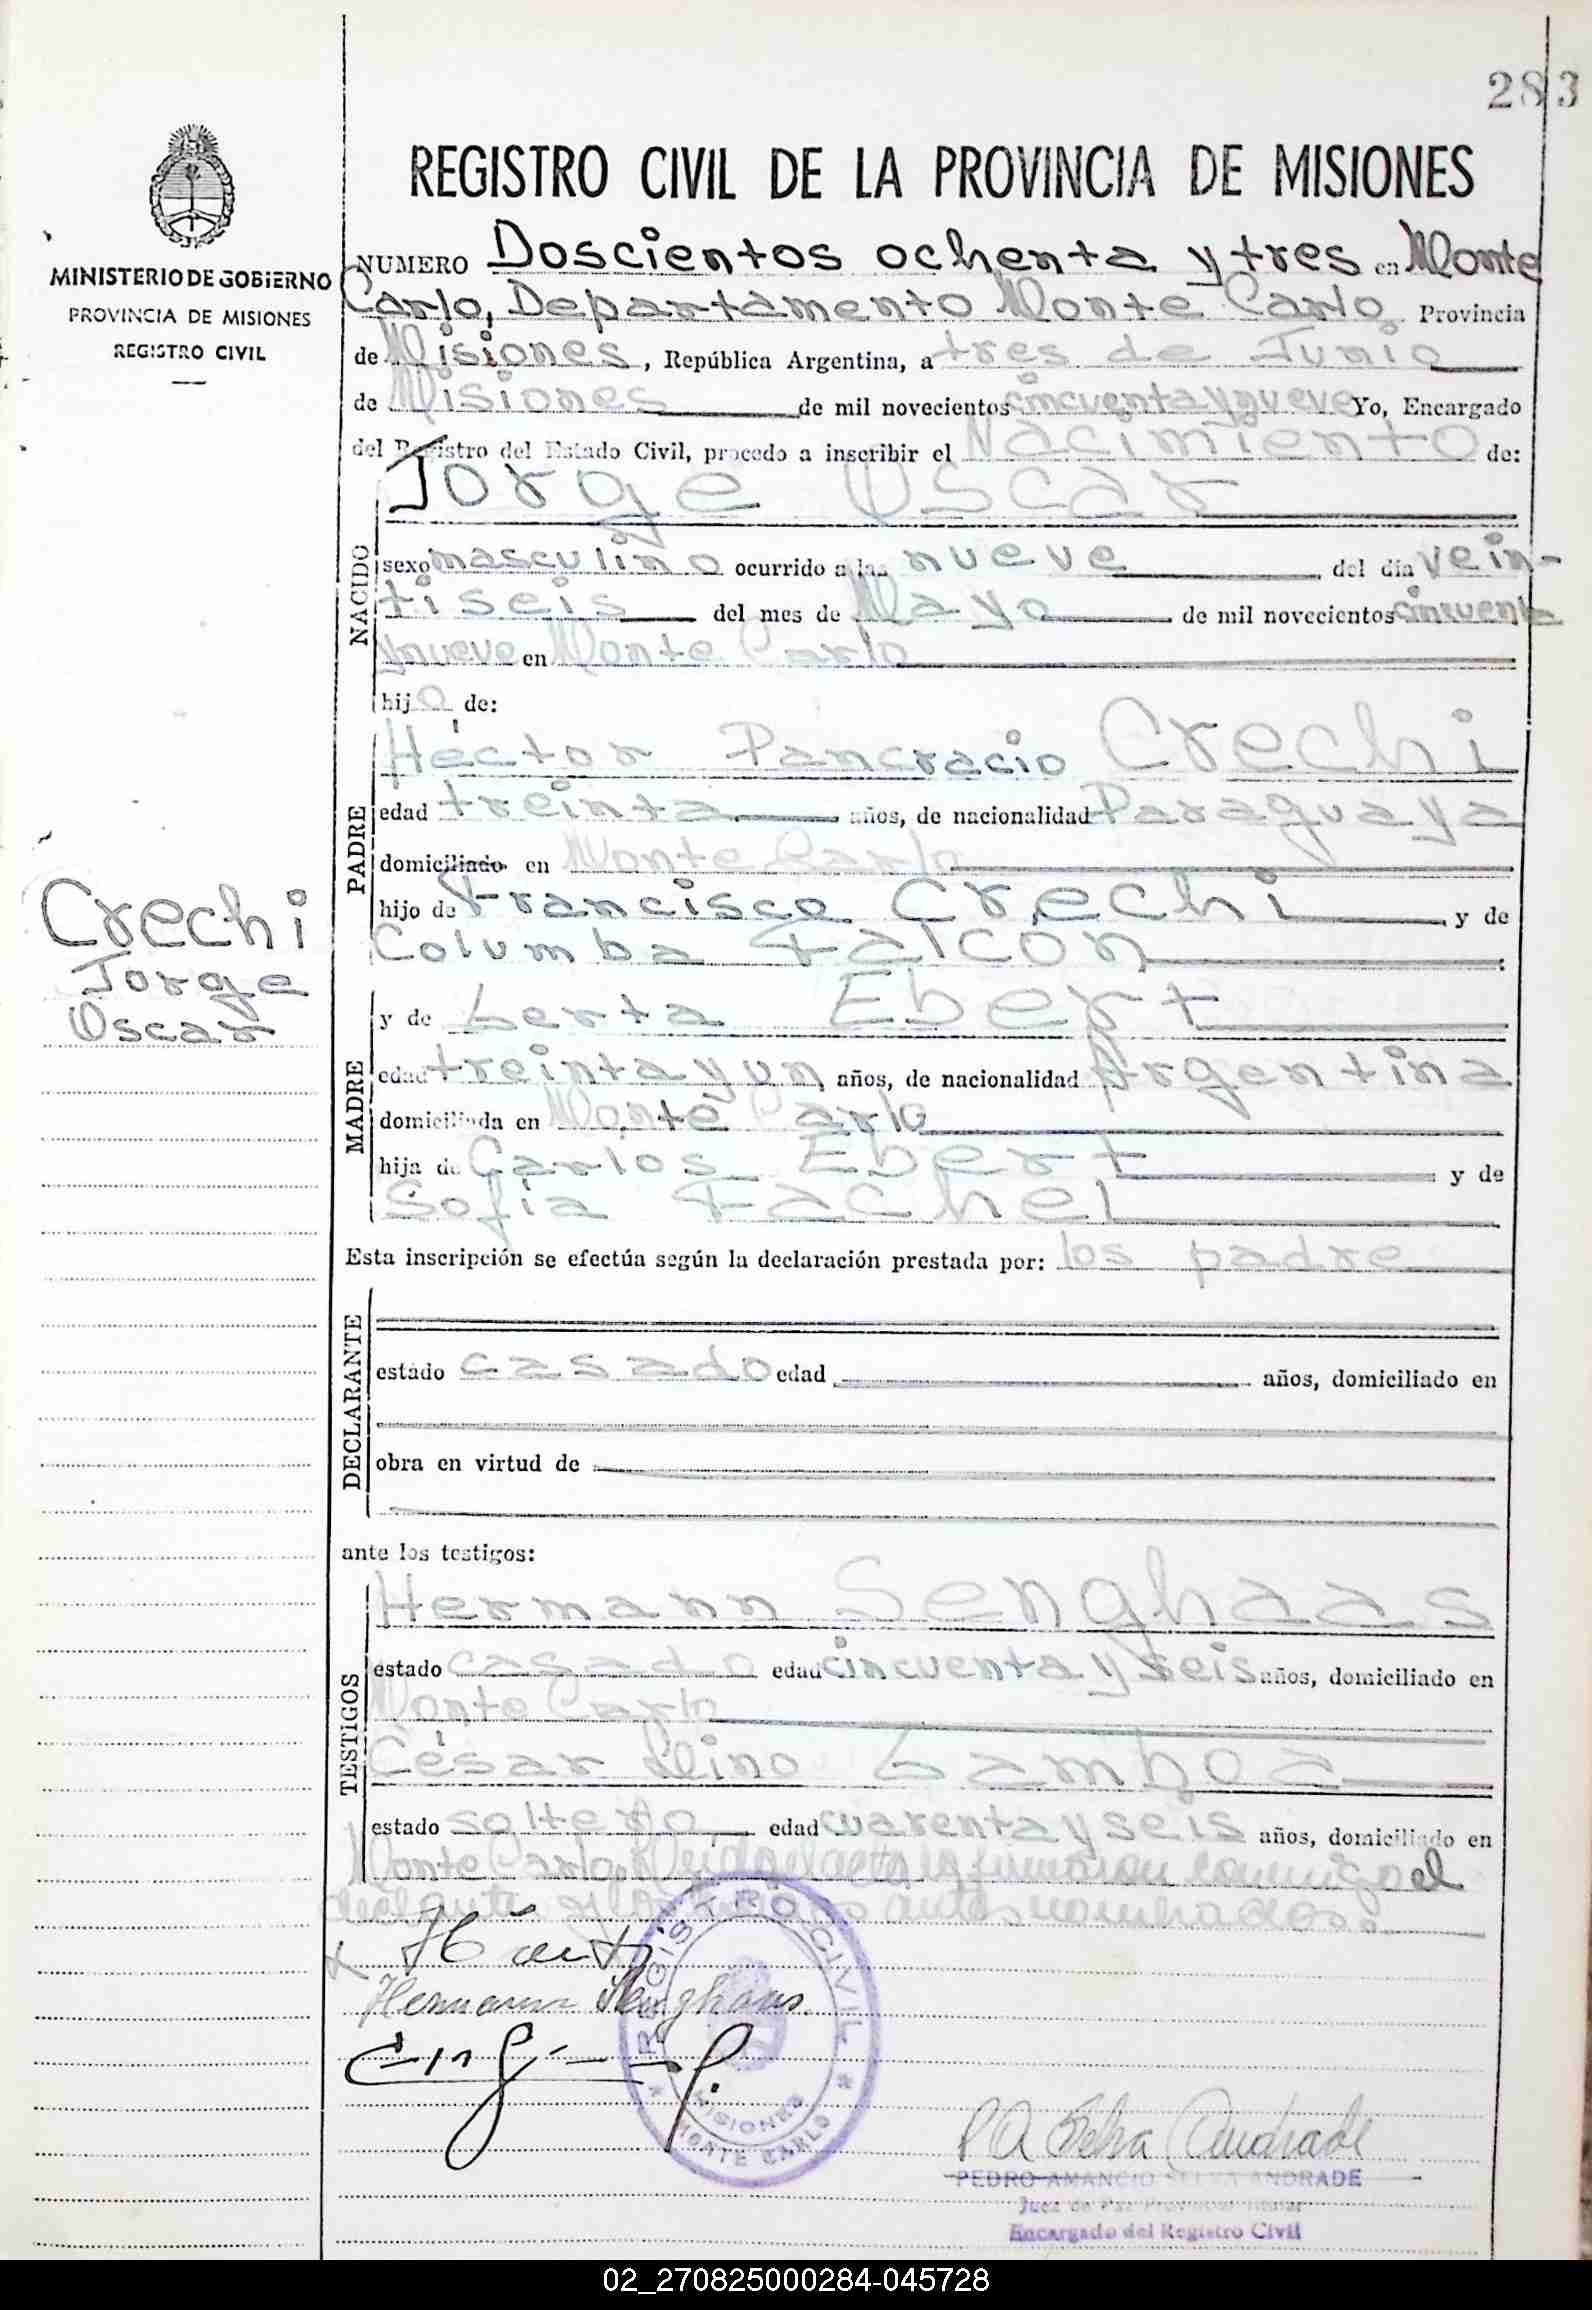 283
REGISTRO CIVIL DE LA PROVINCIA DE MISIONES
MINISTERIO DE GOBIERNO
PROVINCIA DE MISIONES
REGISTRO CIVIL
NUMERO Doscientos ochenta y tres en Monte
Carlo, Departamento Monte Carlo Provincia
de Misiones, República Argentina, a tres de Junio
de Misiones de mil novecientos cincuenta y nueve Yo, Encargado
del Registro del Estado Civil, procedo a inscribir el Nacimiento de:
Jorge Oscar
NACIDO
sexo masculino ocurrido a las nueve del día vein-
tiseis del mes de Mayo de mil novecientos cincuenta
y nueve en Monte Carlo
hijo de:
PADRE
Héctor Pancracio Crechi
edad treinta años, de nacionalidad Paraguaya
domiciliado en Monte Carlo
hijo de Francisco Crechi y de
Columba Falcon
Crechi
Jorge
Oscar
MADRE
y de Berta Ebert
edad treinta y un años, de nacionalidad Argentina
domiciliada en Monte Carlo
hija de Carlos Ebert y de
Sofia Fachel
Esta inscripción se efectúa según la declaración prestada por: los padre
DECLARANTE
estado casado edad años, domiciliado en
obra en virtud de
ante los testigos:
TESTIGOS
Hermann Senghaas
estado casado edad cincuenta y seis años, domiciliado en
Monte Carlo
César Lino Gamboa
estado soltero edad cuarenta y seis años, domiciliado en
Monte Carlo. el acta la conmigo el
antes nombrados.
Hermann Senghaas
REGISTRO CIVIL
MISIONES
MONTE CARLO
P A Selva Andrade
PEDRO AMANCIO SELVA ANDRADE
Juez de Paz
Encargado del Registro Civil
02_270825000284-045728